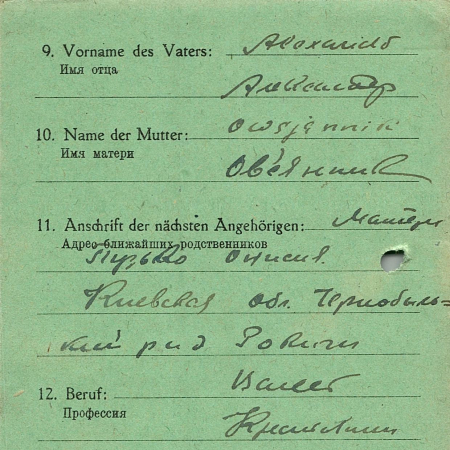 9. Vorname des Vaters: Alexander
Имя отца
Александер
10. Name der Mutter: Owsjannik
Имя матери
Овсянник
11. Anschrift der nächsten Angehörigen: Матери
Адрес ближайших родственников
Онисия
Киевская обл. Чернобыль-
кий
12. Beruf: Bauer
Профессия
Крестьянин